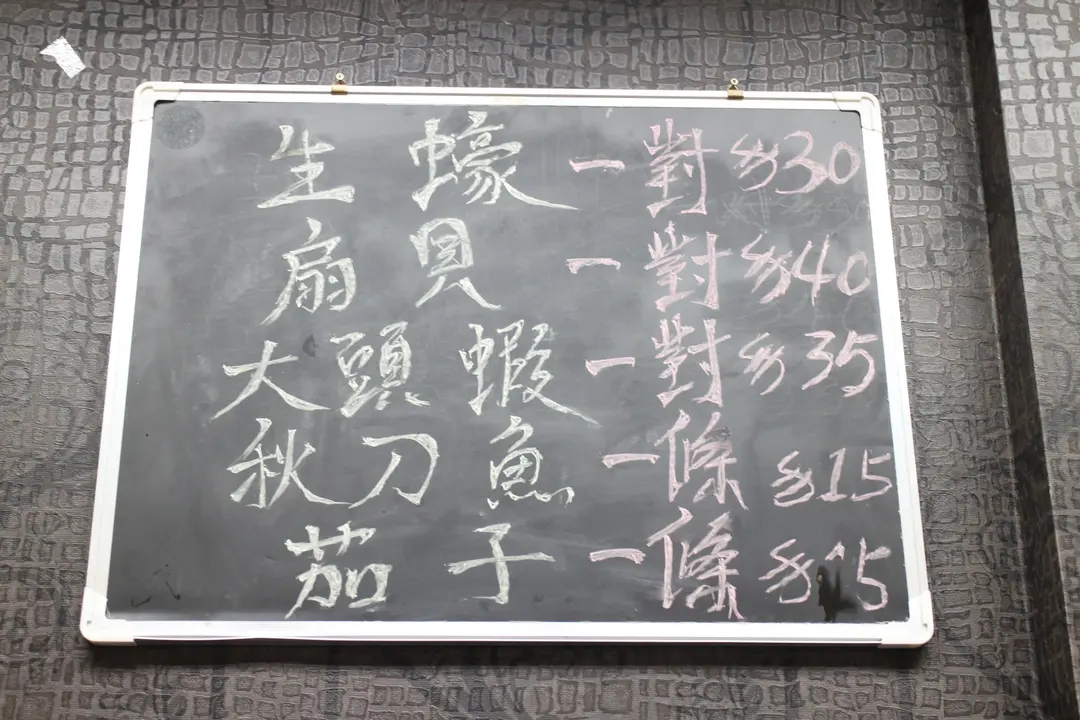 生蠔 一對 $30
扇貝 一對 $40
大頭蝦 一對 $35
秋刀魚 一條 $15
茄子 一條 $15